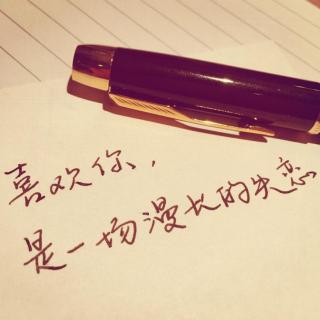 喜欢你，
是一场漫长的失恋